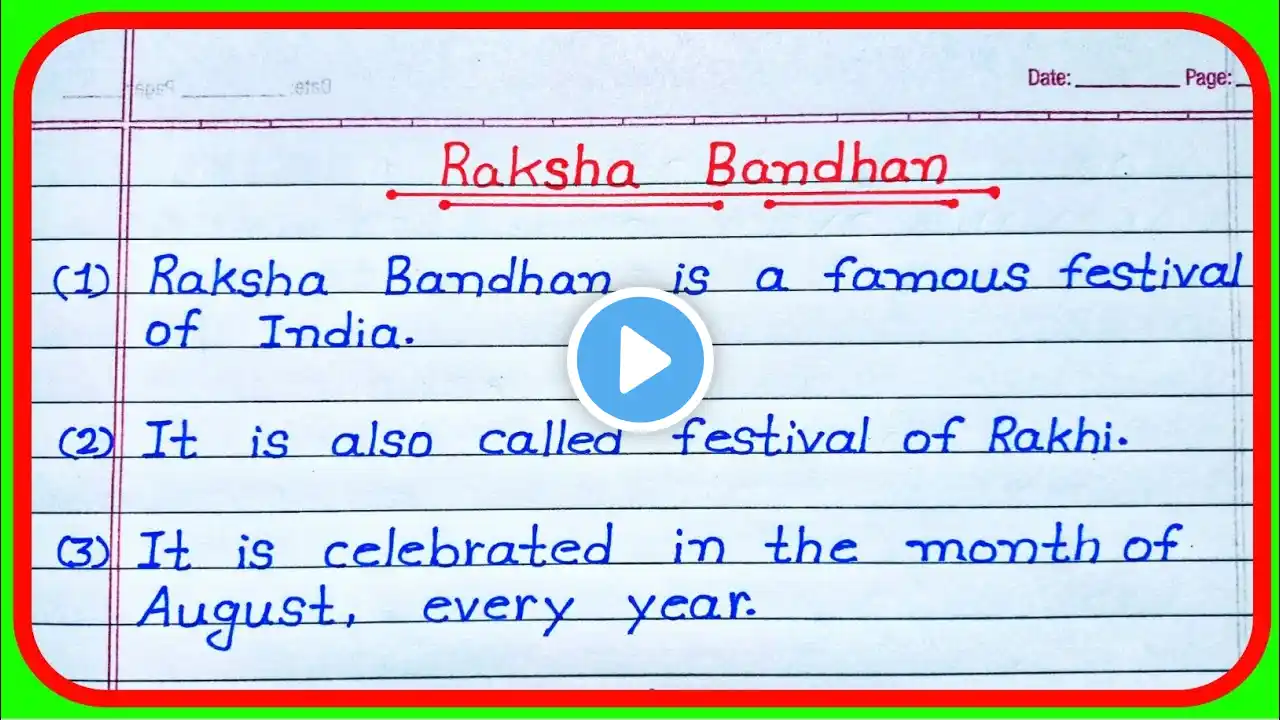 Date: Page:
Date: Page:
Raksha Bandhan
(1) Raksha Bandhan is a famous festival
of India.
(2) It is also called festival of Rakhi.
(3) It is celebrated in the month of
August, every year.